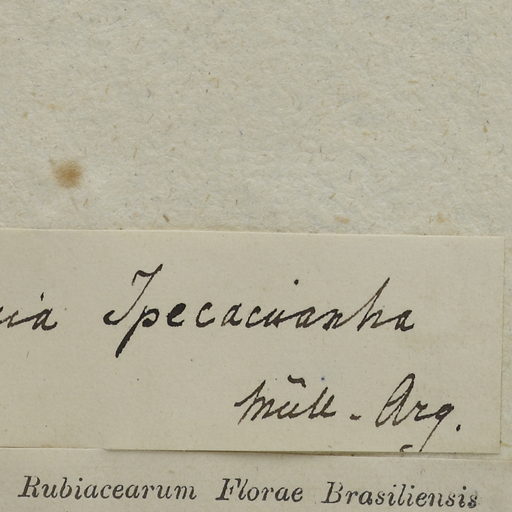 Ipecacuanha
Müll-Arg.
Rubiacearum Florae Brasiliensis